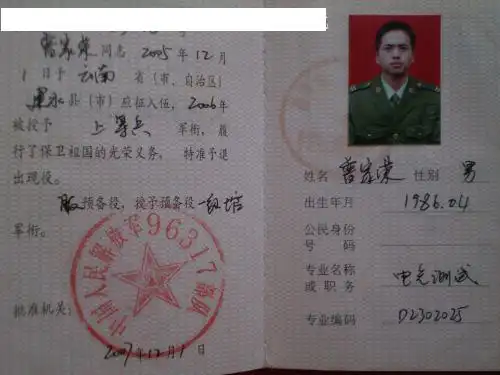 曹家荣 同志 2005 年 12 月
1 日于 云南 省（市、自治区）
建水 县（市）应征入伍，2006 年
被授予 上等兵 军衔，履
行了保卫祖国的光荣义务，特准予退
出现役。
服预备役，授予预备役
军衔。
中国人民解放军96317部队
批准机关：
2007 年 12 月 1 日
姓名 曹家荣 性别 男
出生年月 1986.04
公民身份
号 码
专业名称 电气测试
或职务
专业编码 D2302025